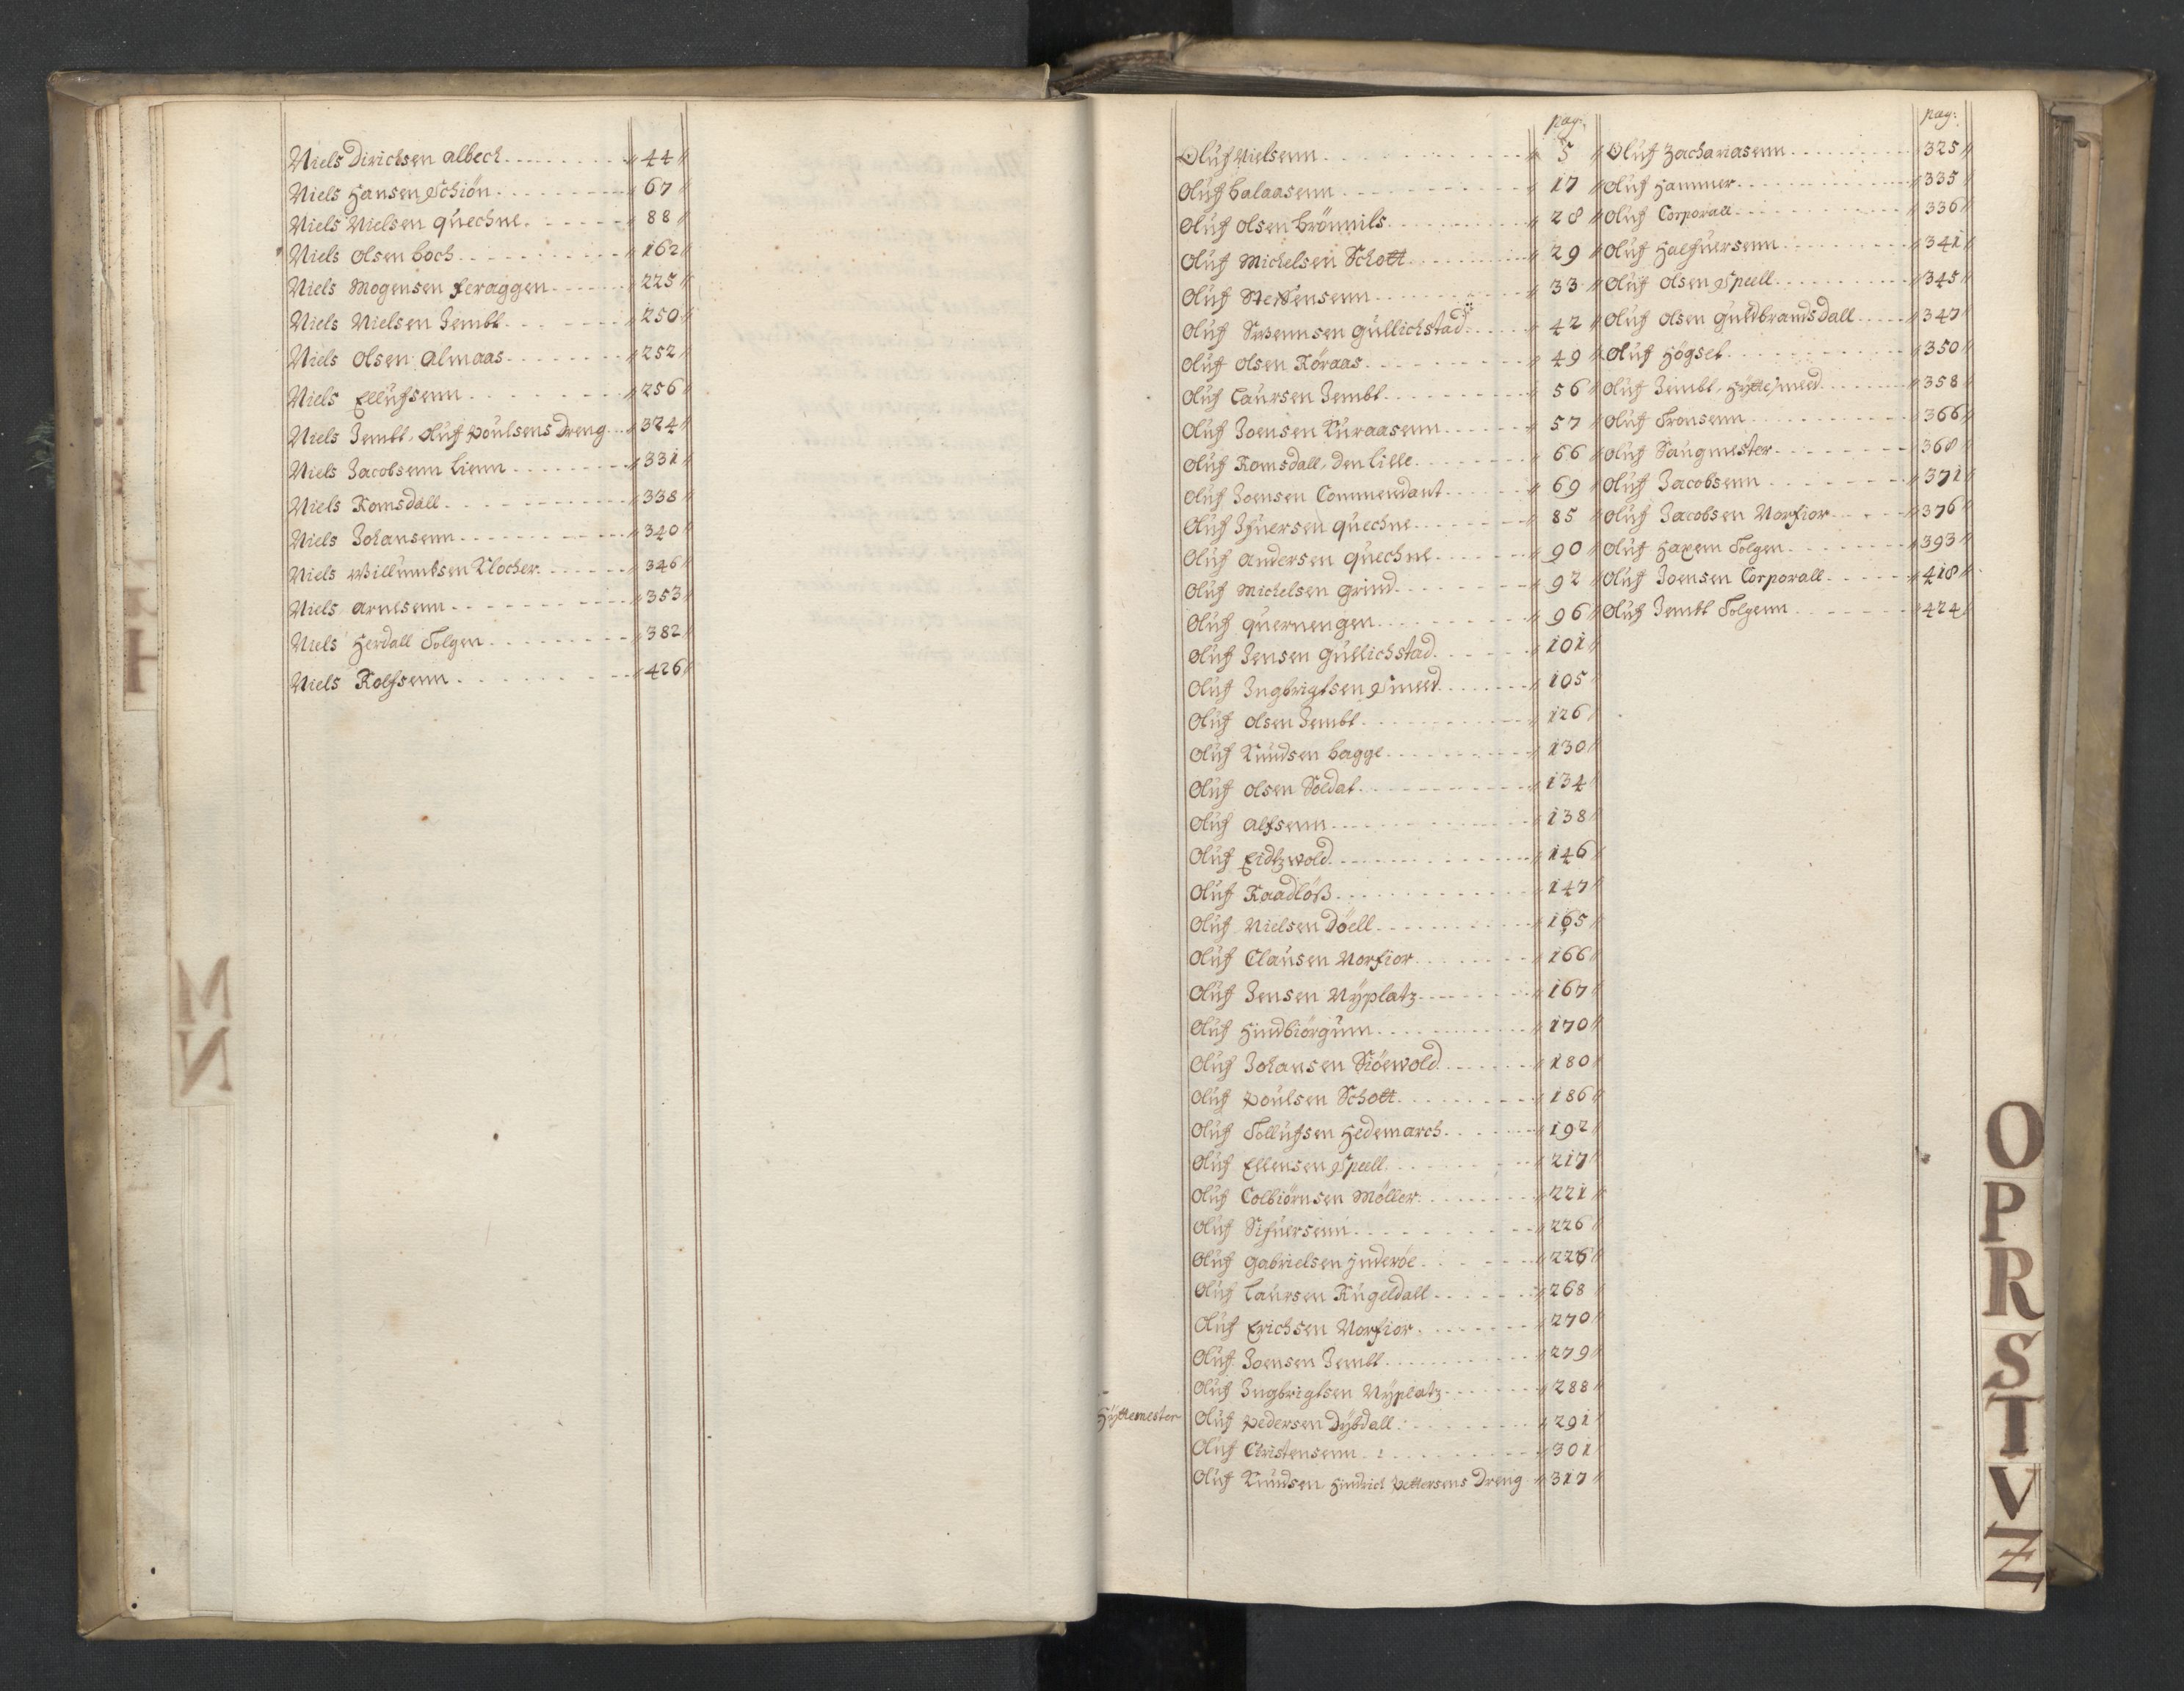 Niels Dirichsen Albech 44
Niels Hansen Schiön 67
Niels Nielsen Quechne 88
Niels Olsen Boch 162
Niels Mogensen Feraggen 225
Niels Nielsen Jembt 250
Niels Olsen Almaas 252
Niels Ellufsenn 256
Niels Jembt, Oluf Poulsens Dreng 324
Niels Jacobsenn Lienn 331
Niels Romsdall 338
Niels Johansenn 340
Niels Willumbsen Klocher 346
Niels Arnesenn 353
Niels Herdall Tolgen 382
Niels Rolfsenn 426
M
N
pag:
Oluf Nielsenn 5
Oluf Balaasenn 17
Oluf Olsen Brönnils 28
Oluf Michelsen Schott 29
Oluf Steffensenn 33
Oluf Svennsen Gullichstad 42
Oluf Olsen Röraas 49
Oluf Laursen Jembt 56
Oluf Joensen Kuraasenn 57
Oluf Romsdall, den lille 66
Oluf Joensen Commendant 69
Oluf Ifuersen Quechne 85
Oluf Andersen Quechne 90
Oluf Michelsen Grind 92
Oluf Quernengen 96
Oluf Jensen Gullichstad 101
Oluf Ingbrigtsen Smeed 105
Oluf Olsen Jembt 126
Oluf Knudsen Bagge 130
Oluf Olsen Soldat 134
Oluf Alfsenn 138
Oluf Eidtzwold 146
Oluf Raadlöß 147
Oluf Nielsen Döell 165
Oluf Clausen Norfior 166
Oluf Jensen Nÿplatz 167
Oluf Hindbiörgunn 170
Oluf Johansen Siöewold 180
Oluf Poulsen Schott 186
Oluf Tollufsen Hedemarch 192
Oluf Ellensen Speell 217
Oluf Colbiörnsen Möller 221
Oluf Sifuersenn 226
Oluf Gabrielsen Inderöe 226
Oluf Laursen Kugeldall 268
Oluf Erichsen Norfior 270
Oluf Joensen Jembt 279
Oluf Ingbrigtsen Nÿplatz 288
Hÿttemester Oluf Pedersen Dÿbdall 291
Oluf Christensenn 301
Oluf Knudsen Hindrich Pettersens Dreng 317
pag:
Oluf Zachariasenn 325
Oluf Hammer 335
Oluf Corporall 336
Oluf Halfuersenn 341
Oluf Olsen Speell 345
Oluf Olsen Guldbrandsdall 347
Oluf Högset 350
Oluf Jembt, Hÿttesmeed 358
Oluf Tronsenn 366
Oluf Saugmester 368
Oluf Jacobsenn 371
Oluf Jacobsen Norfior 376
Oluf Haxem Tolgen 393
Oluf Joensen Corporall 418
Oluf Jembt Tolgenn 424
O
P
R
S
T
V
Z